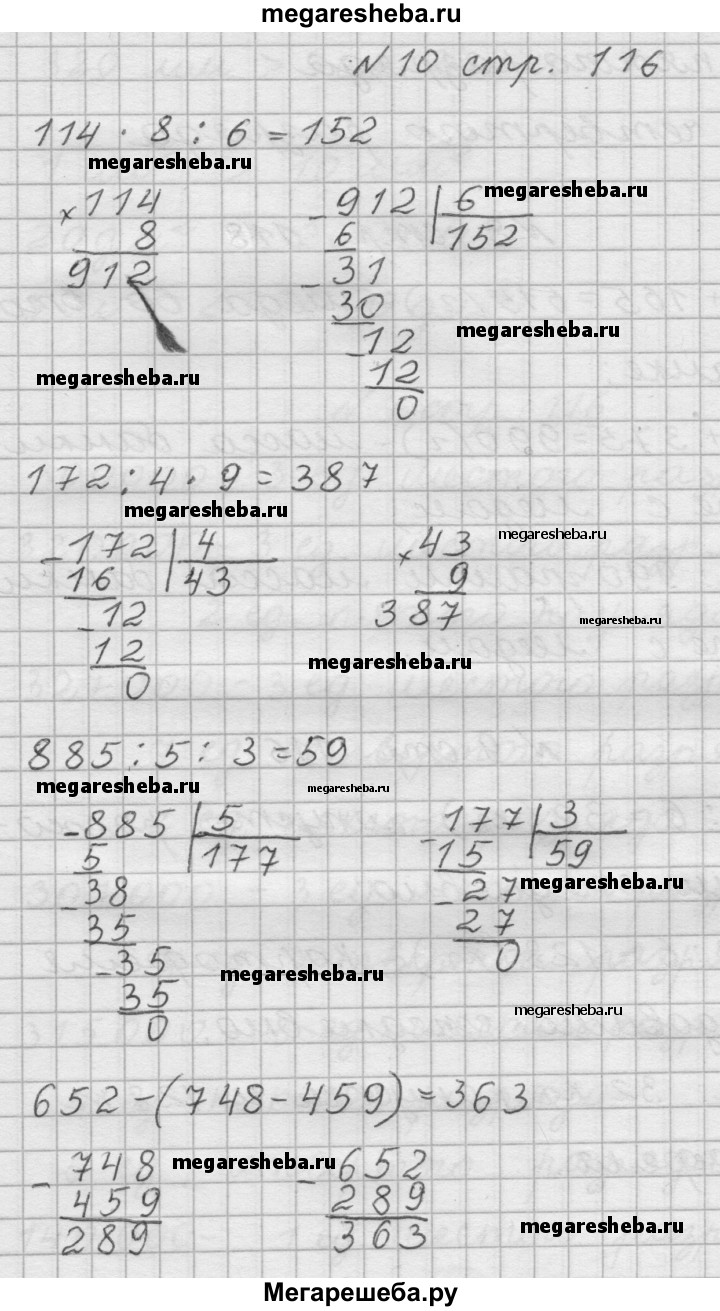 megaresheba.ru
№ 10 стр. 116
114 · 8 : 6 = 152
megaresheba.ru
× 114
8
912
- 912 | 6
megaresheba.ru
6 152
- 31
30
megaresheba.ru
- 12
12
0
megaresheba.ru
172 : 4 · 9 = 387
megaresheba.ru
- 172 | 4
16 43
- 12
12
0
megaresheba.ru
× 43
9
387
megaresheba.ru
megaresheba.ru
885 : 5 : 3 = 59
megaresheba.ru megaresheba.ru
- 885 | 5
5 177
- 38
35
- 35
35
0
- 177 | 3
15 59
- 27
megaresheba.ru
27
0
megaresheba.ru
megaresheba.ru
652 - (748 - 459) = 363
- 748
459
289
megaresheba.ru
- 652
289
363
megaresheba.ru
Мегарешеба.ру